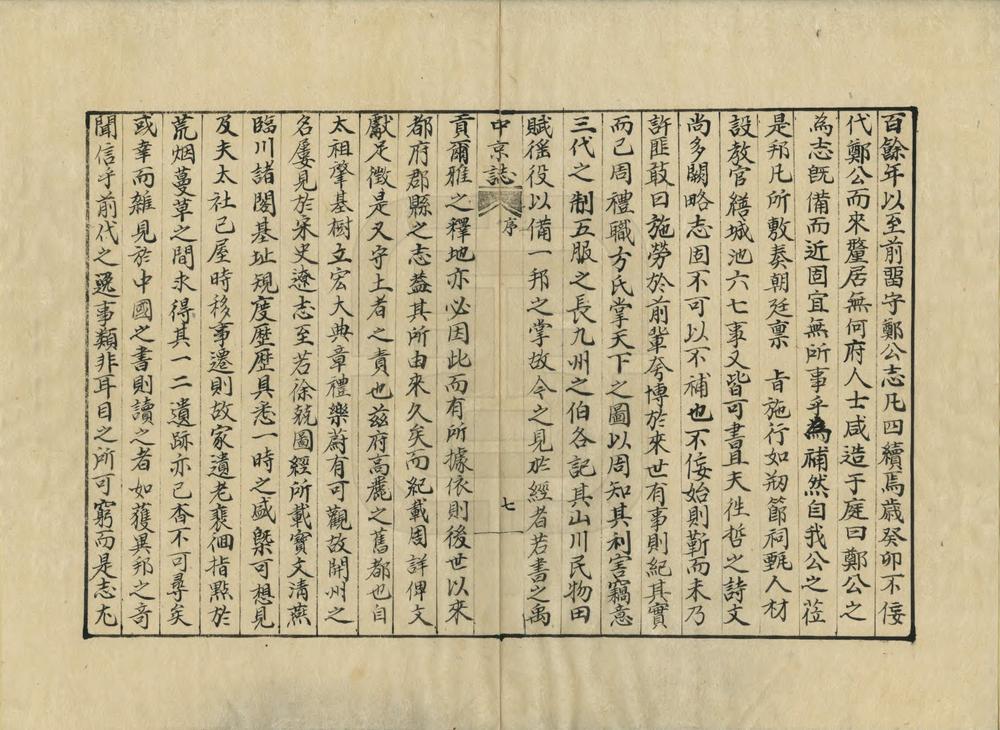 百餘年以至前留守鄭公志凡四續焉歲癸卯不佞
代鄭公而來釐居無何府人士咸造于庭曰鄭公之
為志旣備而近固宜無所事乎為補然自我公之莅
是邦凡所敷奏朝廷禀 旨施行如刱節祠甄人材
設教官繕城池六七事又皆可書且夫徃哲之詩文
尚多闕略志固不可以不補也不佞始則靳而未乃
許匪敢曰施勞於前輩夸博於來世有事則紀其實
而已周禮職方氏掌天下之圖以周知其利害竊意
三代之制五服之長九州之伯各記其山川民物田
賦徭役以備一邦之掌故今之見於經者若書之禹
中京誌 序 七
貢爾雅之釋地亦必因此而有所據依則後世以來
都府郡縣之志盖其所由來久矣而紀載周詳俾文
獻足徵是又守土者之責也茲府高麗之舊都也自
太祖肇基樹立宏大典章禮樂蔚有可觀故開州之
名屢見於宋史遼志至若徐兢圖經所載寶文清燕
臨川諸閣基址䂓度歷歷具悉一時之盛槩可想見
及夫太社已屋時移事遷則故家遺老裵佪指點於
荒烟蔓草之間求得其一二遺跡亦已杳不可尋矣
或幸而雜見於中國之書則讀之者如獲異邦之奇
聞信乎前代之逸事類非耳目之所可窮而是志尤